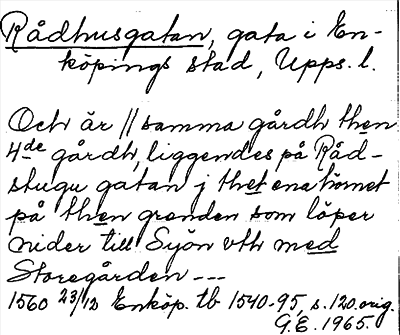 Rådhusgatan, gata i En-
köpings stad, Upps. l.
Och är // samma gårdh then
4de gårdh, liggendes på Råd-
stugu gatan j thet ena hörnet
på then grenden som löper
nider till Sjön vth med
Storegården ---
1560 23/12 Enköp. tb 1540-95, s. 120. orig.
G.E. 1965.